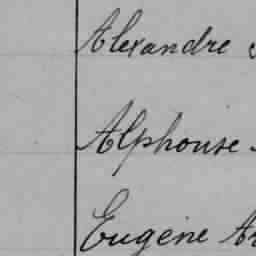 Alexandre
Alphonse
Eugène